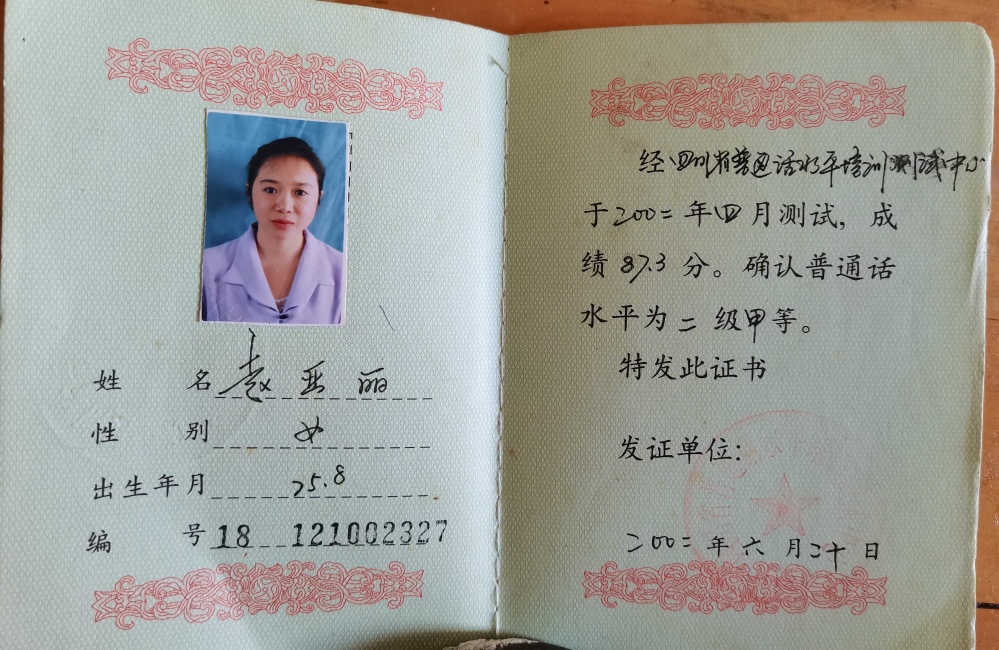 姓 名 赵亚丽
性 别 女
出生年月 75.8
编 号 18 121002327
经四川省普通话水平培训测试中心
于二00二年四月测试，成
绩87.3分。确认普通话
水平为二级甲等。
特发此证书
发证单位：
二00二年六月二十日